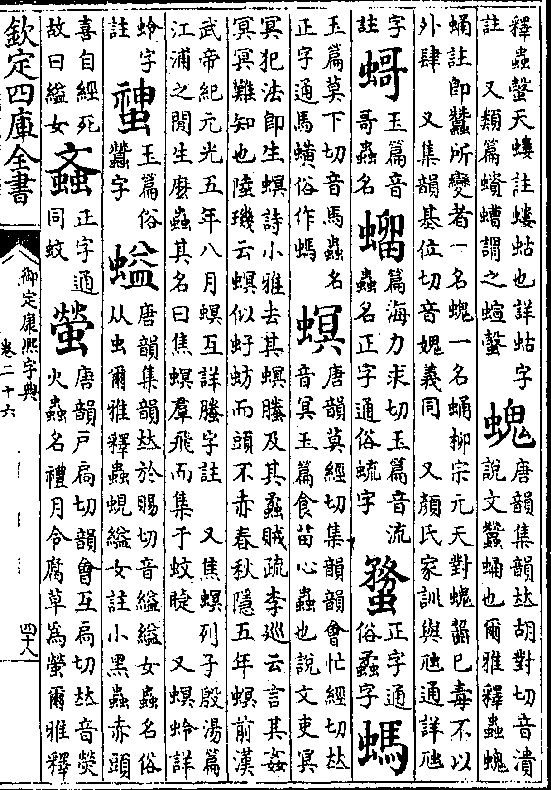 釋蟲螜天螻註螻蛄也詳蛄字
註 又類篇螪螬謂之蝖螜
螝
唐韻集韻𠀤胡對切音潰
說文蠶蛹也爾雅釋蟲螝
蛹註即蠶所變者一名螝一名蛹柳宗元天對螝齧已毒不以
外肆 又集韻基位切音媿義同 又顏氏家訓與虺通詳虺
字
註
玉篇音
哥蟲名
篇海力求切玉篇音流
蟲名正字通俗字
正字通
俗蟊字
螞
玉篇莫下切音馬蟲名
正字通馬蟥俗作螞
螟
唐韻莫經切集韻韻會忙經切𠀤
音冥玉篇食苗心蟲也說文吏冥
冥犯法即生螟詩小雅去其螟螣及其蟊賊疏李巡云言其姦
冥冥難知也陸璣云螟似虸蚄而頭不赤春秋隱五年螟前漢
武帝紀元光五年八月螟互詳螣字註 又焦螟列子殷湯篇
江浦之閒生麼蟲其名曰焦螟羣飛而集于蚊睫 又螟蛉詳
蛉字
註
玉篇俗
蠶字
螠
唐韻集韻𠀤於賜切音縊縊女蟲名俗
从虫爾雅釋蟲蜆縊女註小黑蟲赤頭
喜自經死
故曰縊女
正字通
同蚊
螢
唐韻戸扃切韻會互扃切𠀤音熒
火蟲名禮月令腐草爲螢爾雅釋
欽定四庫全書
御定康熙字典
卷二十六
四十八